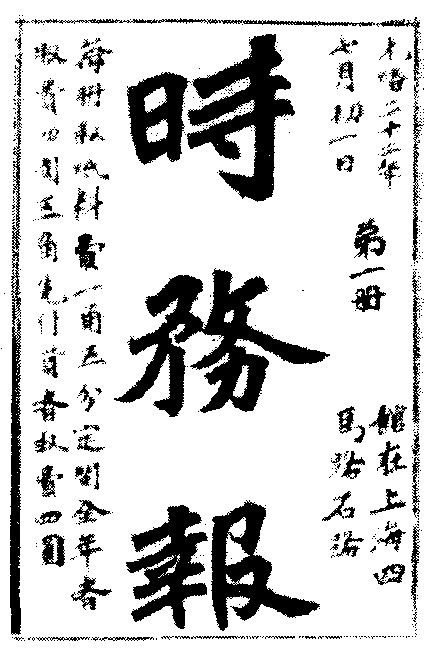 光緒二十二年
七月初一日
第一冊
館在上海四
馬路石路
時務報
每冊收紙料費一角五分定閱全年者
收費四圓五角先付資者收費四圓